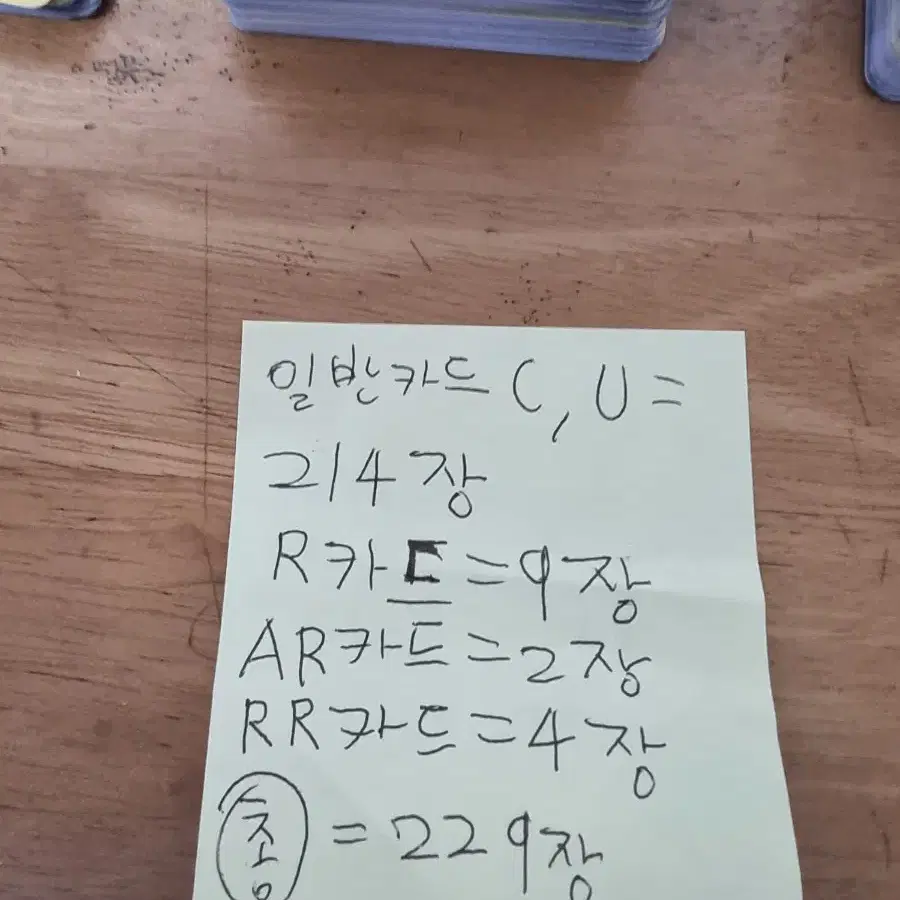 일반카드 C, U =
214장
R카드=9장
AR카드=2장
RR카드=4장
총 = 229장